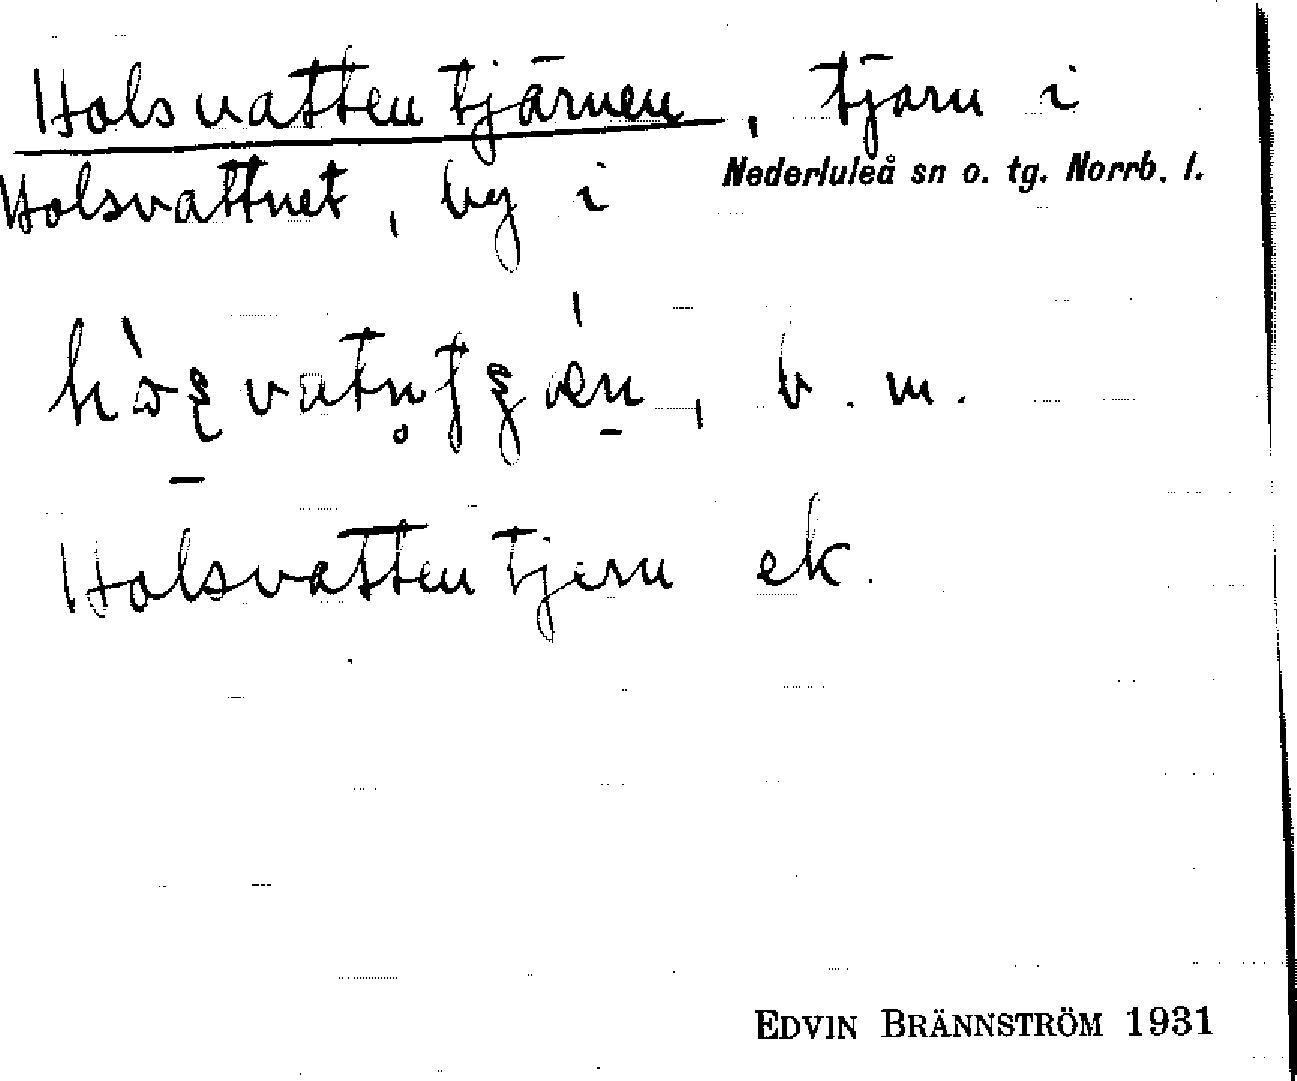 Holsvattentjärnen, tjärn i
Holsvattnet, by i Nederluleå sn o. tg. Norrb. l.
b. m.
Holsvattentjern ek.
EDVIN BRÄNNSTRÖM 1931